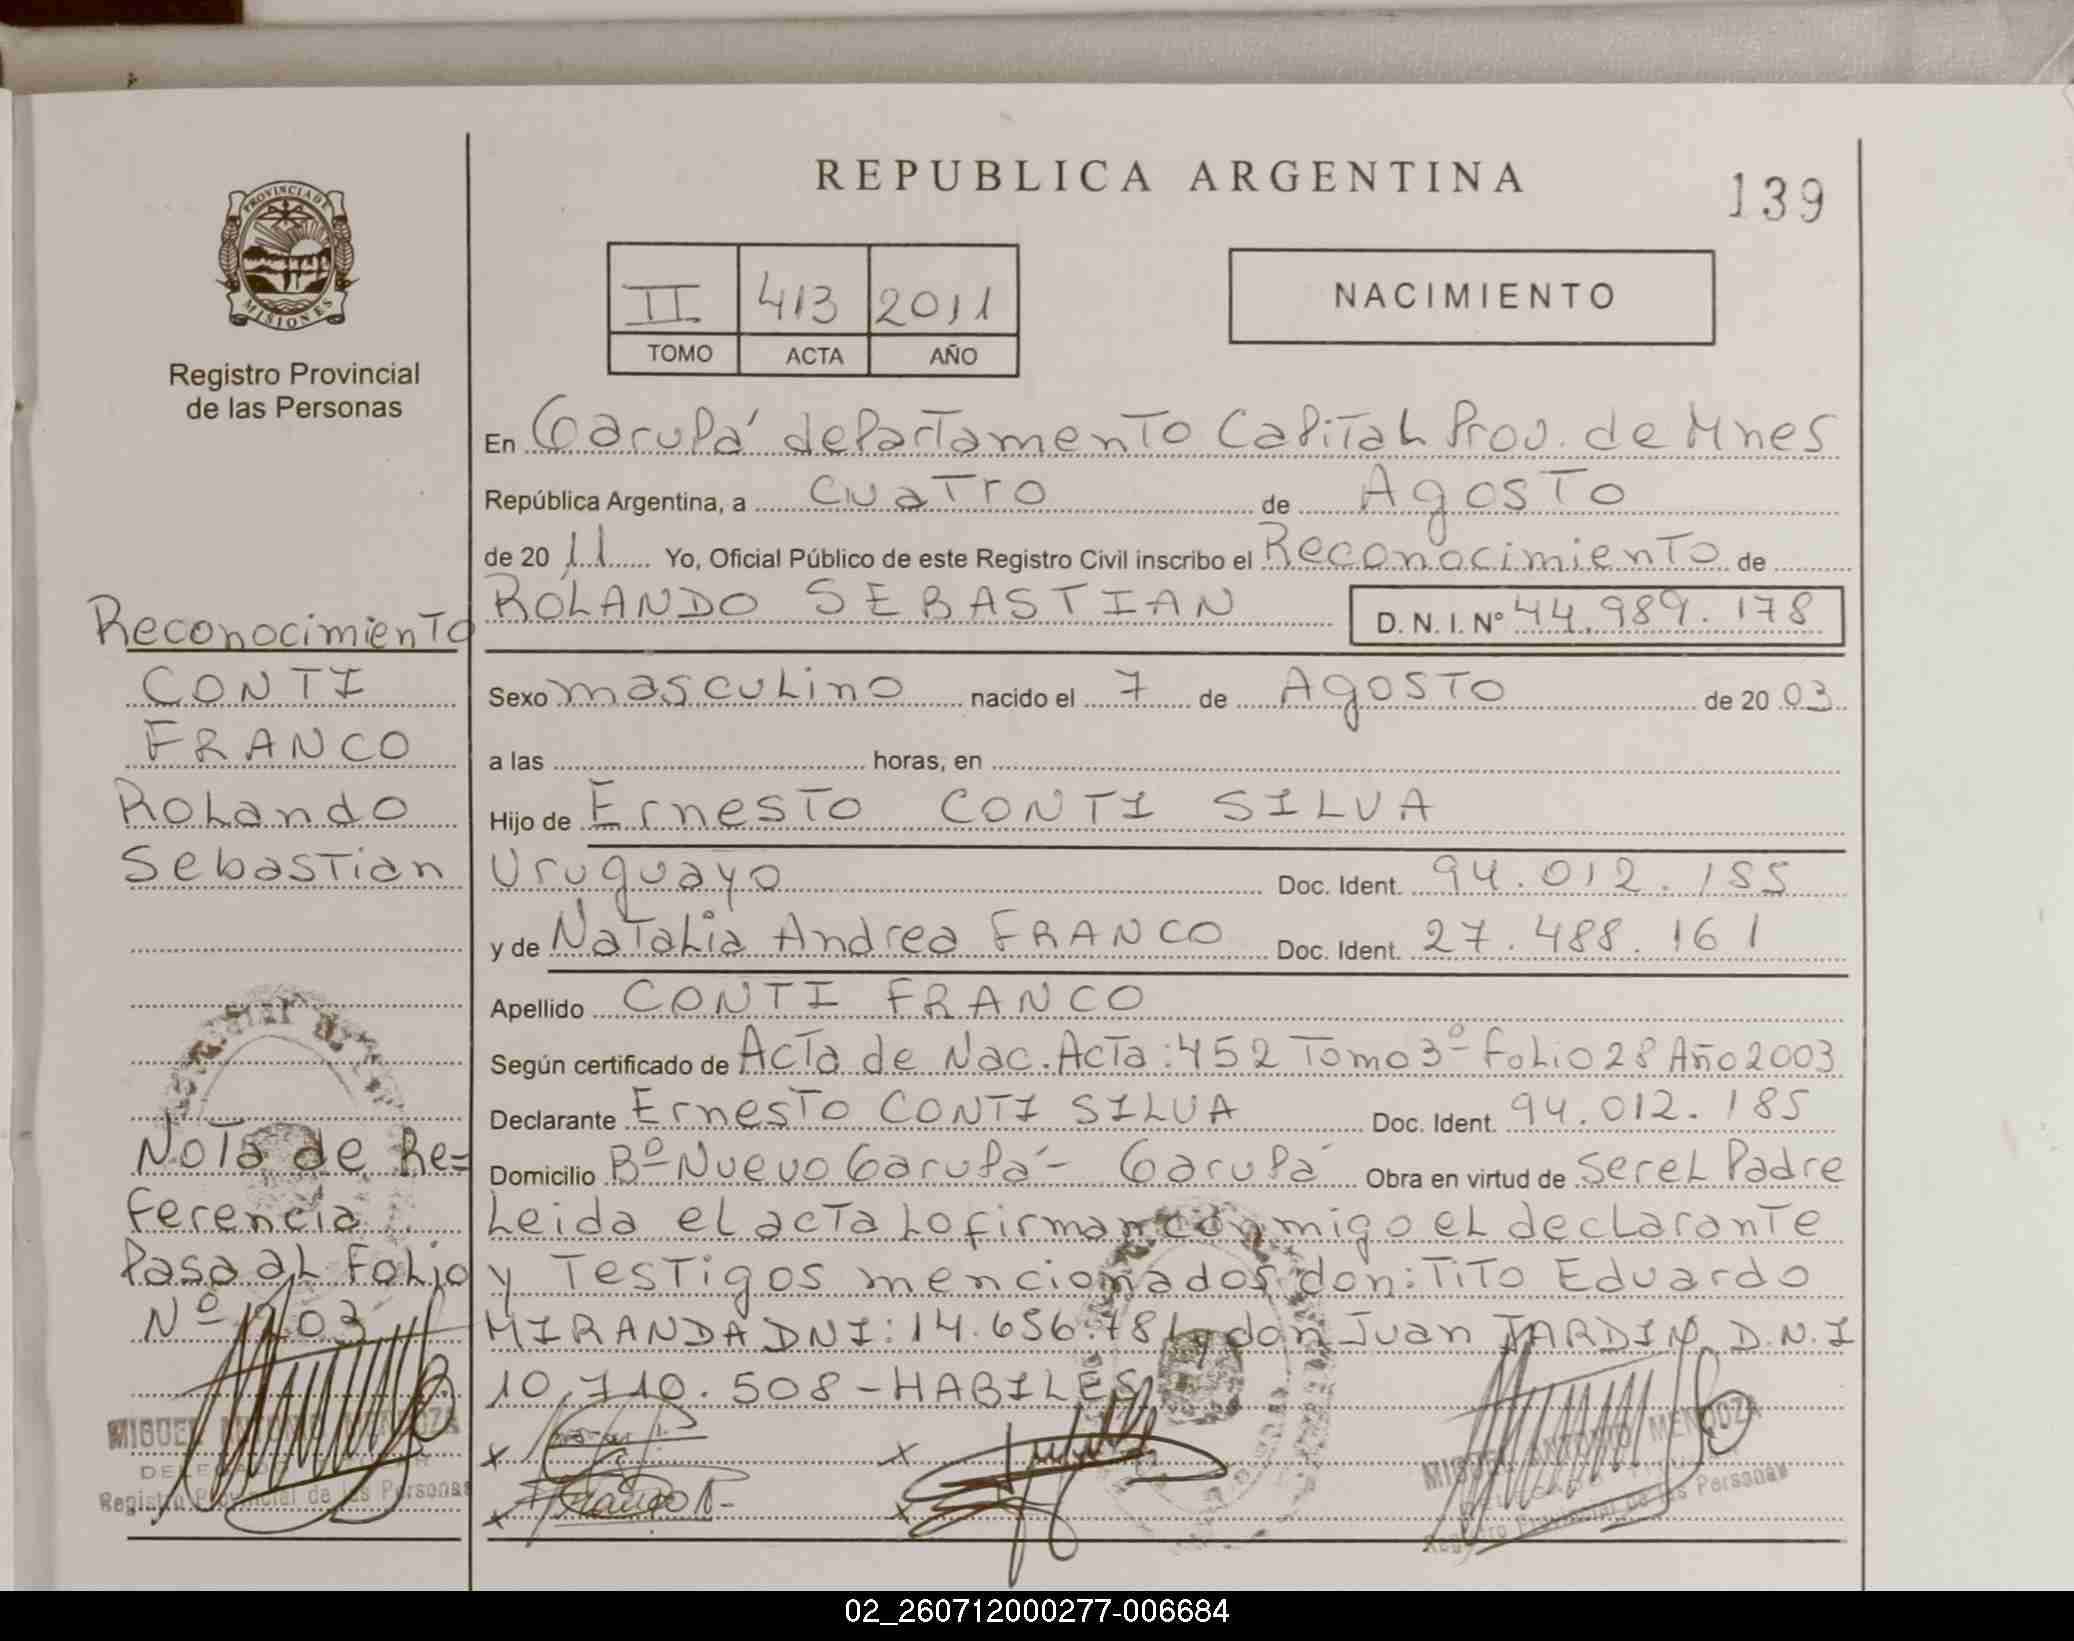 REPUBLICA ARGENTINA
139
PROVINCIA DE
MISIONES
Registro Provincial
de las Personas
II 413 2011
TOMO ACTA AÑO
NACIMIENTO
En Garupá departamento Capital Prov. de Mnes
República Argentina, a cuatro de Agosto
de 20 11 Yo, Oficial Público de este Registro Civil inscribo el Reconocimiento de
ROLANDO SEBASTIAN D. N. I. N° 44.989.178
Sexo masculino nacido el 7 de Agosto de 20 03
a las horas, en
Hijo de Ernesto CONTI SILVA
Uruguayo Doc. Ident. 94.012.185
y de Natalia Andrea FRANCO Doc. Ident. 27.488.161
Apellido CONTI FRANCO
Según certificado de Acta de Nac. Acta: 452 Tomo 3º Folio 28 Año 2003
Declarante Ernesto CONTI SILVA Doc. Ident. 94.012.185
Domicilio Bº Nuevo Garupá - Garupá Obra en virtud de Ser el Padre
Leida el acta lo firman conmigo el declarante
y Testigos mencionados don: TITO Eduardo
MIRANDA DNI: 14.656.781 y don Juan JARDIN D.N.I
10.710.508 - HABILES
Reconocimiento
CONTI
FRANCO
Rolando
Sebastian
Nota de Re=
ferencia
Pasa al Folio
Nº
MIGUEL ANTONIO MENDOZA
Registro Provincial de las Personas
Franco N-
MIGUEL ANTONIO MENDOZA
Registro Provincial de las Personas
02_260712000277-006684